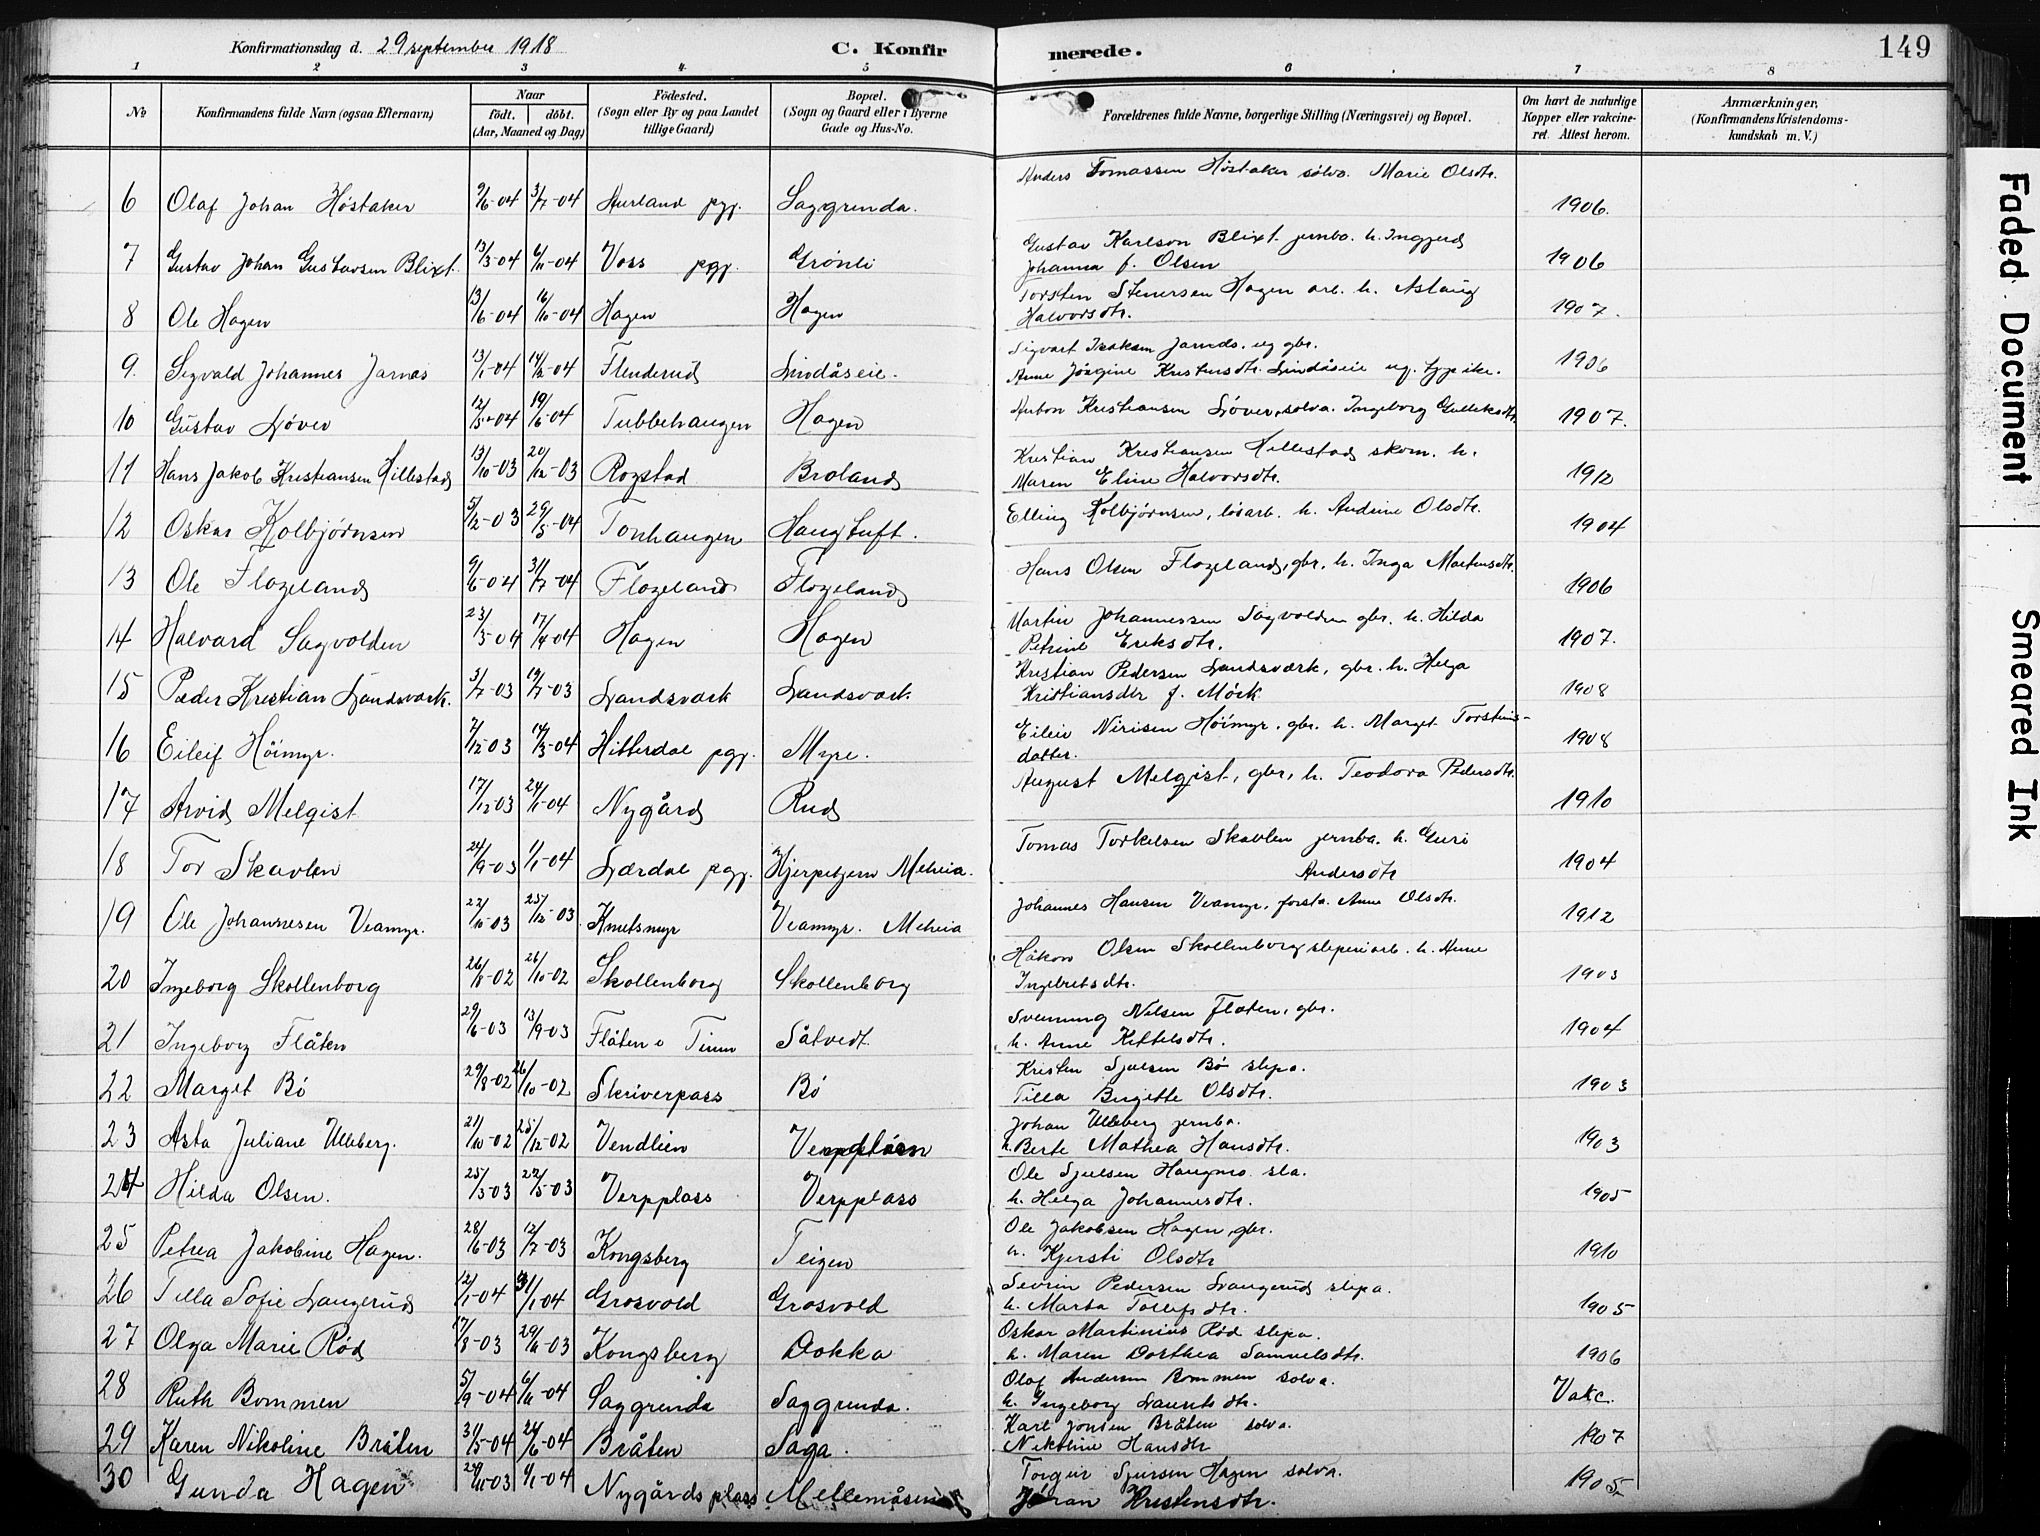 Konfirmationsdag d. 29 september 1918 C. Konfirmerede. 149
1 2 3 4 5 6 7 8
No Konfirmandens fulde Navn (ogsaa Efternavn) Naar født. døbt. (Aar, Maaned og Dag) Fødested. (Sogn eller By og paa Landet tillige Gaard) Bopæl. (Sogn og Gaard eller i Byerne Gade og Hus-No. Forældrenes fulde Navne, borgerlige Stilling (Næringsvei) og Bopæl. Om havt de naturlige Kopper eller vakcineret. Attest herom. Anmærkninger. (Konfirmandens Kristendomskundskab m. V.)
6 Olaf Johan Høstaker 9/6-04 3/7-04 Aurland pgj. Saggrenda. Anders Tomassen Høstaker sølva. Marie Olsdtr. 1906.
7 Gustav Johan Gustavsen Blixt 13/3-04 6/11-04 Voss pgj. Grønli Gustav Karlson Blixt jernba. h. Ingjerd
Johanna f. Olsen 1906
8 Ole Hagen 13/6-04 16/10-04 Hagen Hagen Torsten Stenersen Hagen arb. h. Aslaug
Halvorsdtr. 1907.
9 Sigvald Johannes Jarnæs 13/1-04 14/2-04 Flenderud Lindåseie. Sigvart Isaksen
Anne Jørgine Kristensdtr. Lindåseie 1906
10 Gustav Løver 12/5-04 19/6-04 Tubbehaugen Hagen Anton Kristiansen Løver, sølva. Ingeborg Gulleksdtr. 1907.
11 Hans Jakob Kristiansen Hillestad 13/10-03 20/12-03 Rogstad Broland Kristian Kristiansen Hillestad skom. h.
Maren Eline Halvorsdtr. 1912
12 Oskar Kolbjørnsen 5/12-03 29/5-04 Tonhaugen Haugtuft. Elling Kolbjørnsen, løsarb. h. Andrine Olsdtr. 1904
13 Ole Flogeland 9/6-04 31/7-04 Flogeland Flogeland Hans Olsen Flogeland, gbr. h. Inga Martensdtr. 1906
14 Halvard Sagvolden 23/3-04 17/4-04 Hagen Hagen Martin Johannessen Sagvolden gbr. h. Hilda
Petrine Eriksdtr. 1907.
15 Peder Kristian Landsverk. 3/7-03 19/7-03 Landsverk Landsverk. Kristian Pedersen Landsværk, gbr. h. Helga
Kristiansdtr f. Mørk 1908
16 Eileif Høimyr. 7/12-03 14/3-04 Hitterdal pgj. Myre. Eileiv Nirisen Høimyr. gbr. h. Marget Torstens-
datter. 1908
17 Arvid Melqist 17/12-03 24/1-04 Nygård Rud August Melqist, gbr. h. Teodora Pedersdtr. 1910
18 Tor Skavlen 24/9-03 1/1-04 Lærdal pgj. Hjerpetjern Meheia. Tomas Torkelsen Skavlen jernba. h. Guri
Andersdtr 1904
19 Ole Johannesen Veamyr. 22/10-03 25/12-03 Knutsmyr Veamyr. Meheia Johannes Hansen Veamyr, forsta. Anne Olsdtr. 1912
20 Ingeborg Skollenborg 26/8-02 26/10-02 Skollenborg Skollenborg Håkon Olsen Skollenborg sliperiarb. h. Anne
Ingebretsdtr. 1903
21 Ingeborg Flåten 29/6-03 13/9-03 Flåten i Tinn Såtvedt. Sveinung Nilsen Flaten, gbr.
h. Anne Kittelsdtr. 1904
22 Marget Bø 29/8-02 26/10-02 Skriverpass Bø Kristen Sjulsen Bø slipa.
Tilla Birgitte Olsdtr. 1903
23 Asta Juliane Ulleberg. 21/10-02 25/12-02 Vendlien Johan Ulleberg jernba.
h. Berte Mathea Hansdtr. 1903
24 Hilda Olsen. 25/3-03 22/5-03 Verpplass Verpplass Ole Sjulsen Haugmo sla.
h. Helga Johannesdtr. 1905
25 Petrea Jakobine Hagen. 28/6-03 12/7-03 Kongsberg Teigen Ole Jakobsen Hagen, gbr.
h. Kjersti Olsdtr 1910
26 Tilla Sofie Langerud 12/1-04 31/1-04 Grosvold Grosvold Sevrin Pedersen Langerud slipa.
h. Marta Tollefsdtr. 1905
27 Olga Marie Rød 17/8-03 Kongsberg Dokka Oskar Martinius Rød slipa.
h. Maren Dorthea Samuelsdtr. 1906
28 Ruth Bommen Saggrenda Saggrenda. Olaf Andersen Bommen sølva.
h. Ingeborg Lauritsdtr. Vakc.
29 Karen Nikoline Bråten 31/5-04 26/6-04 Bråten Saga. Karl Jonsen Bråten sølva.
Nikoline Hansdtr 1907
30 Gunda Hagen Nygårds plass Torgeir Sjursen Hagen sølva.
Jøran Kristensdtr. 1905
Faded Document
Smeared Ink